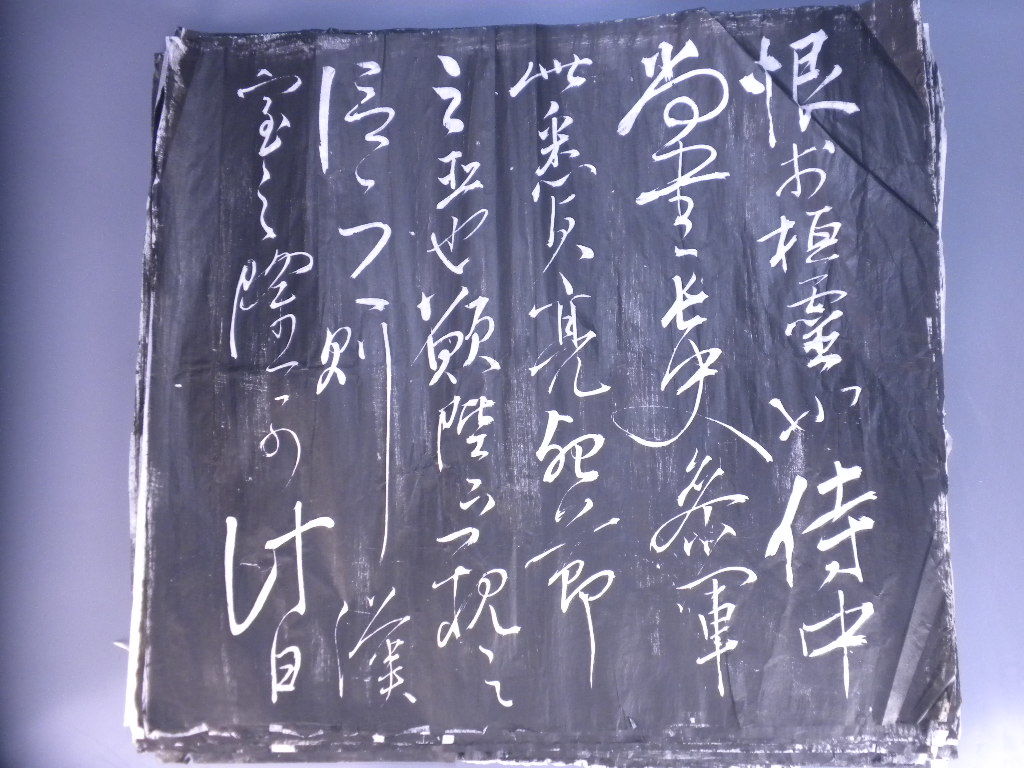 恨於桓靈也侍中
尚書長史參軍
此悉貞亮死節
之臣也願陛下親之
信之則漢
室之隆可計日